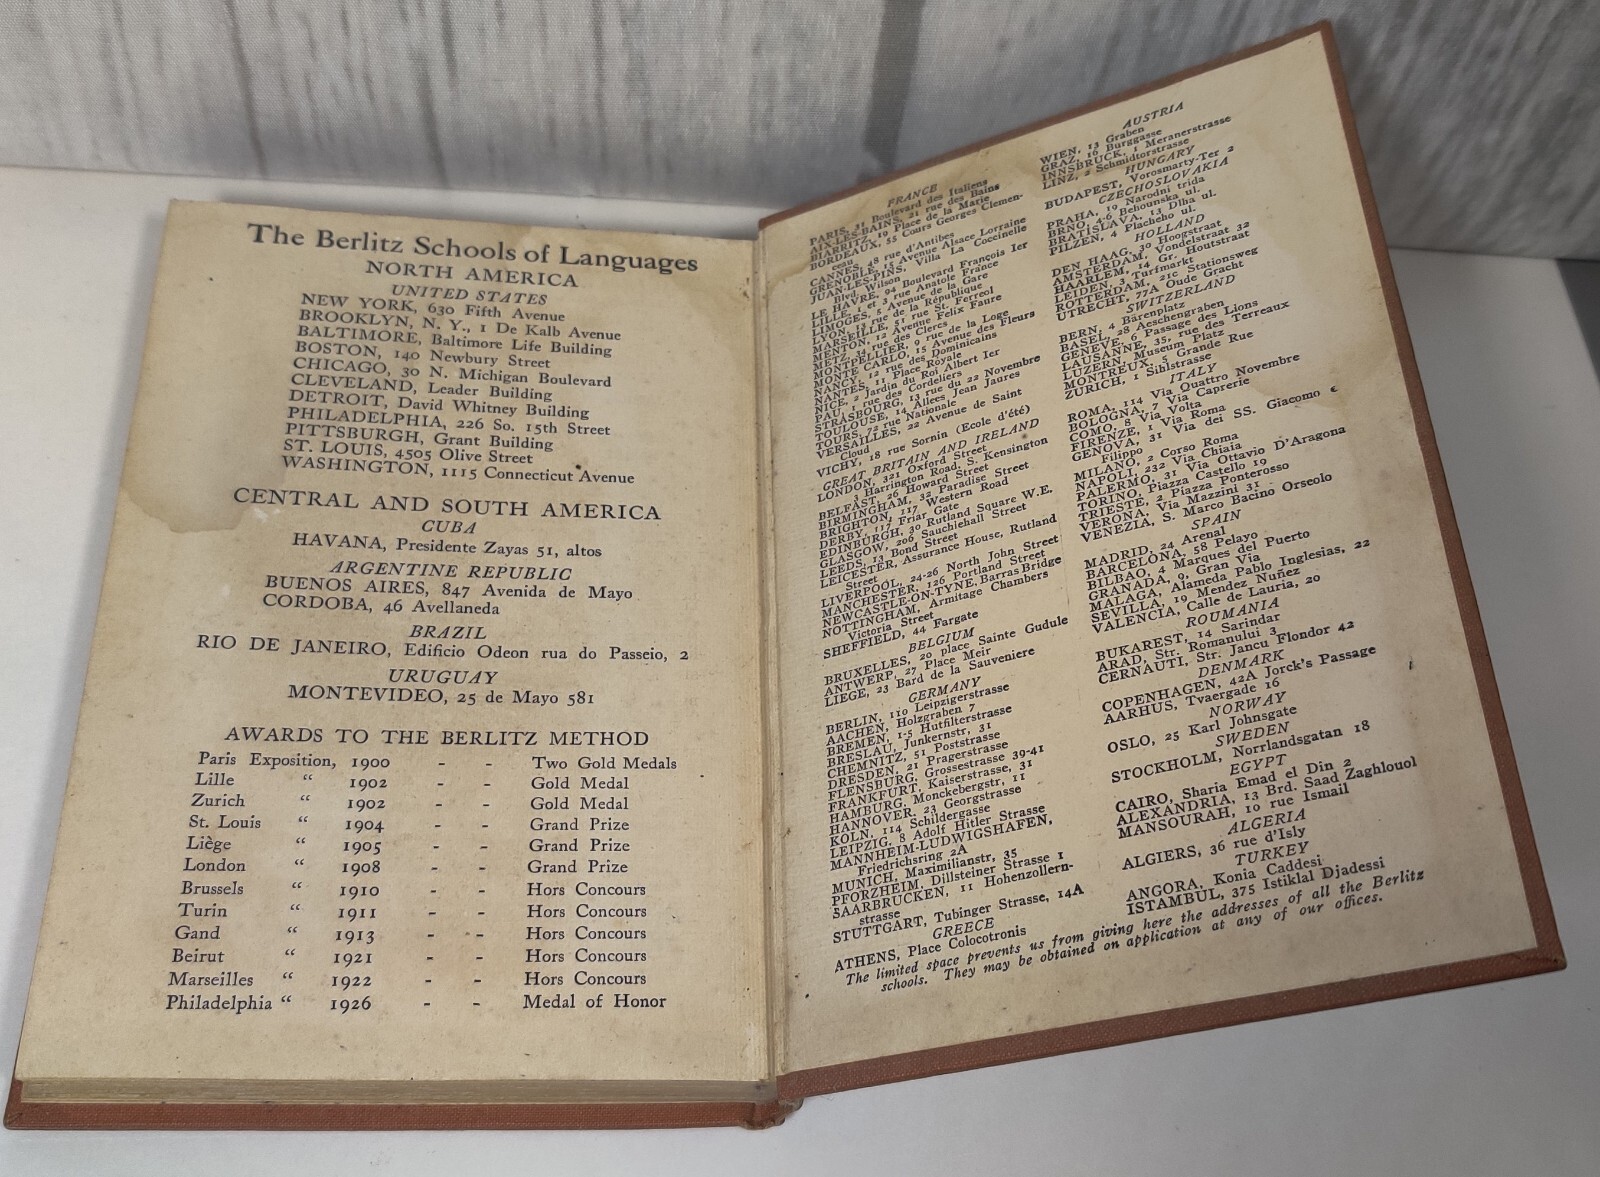 The Berlitz Schools of Languages
NORTH AMERICA
UNITED STATES
NEW YORK, 630 Fifth Avenue
BROOKLYN, N. Y., 1 De Kalb Avenue
BALTIMORE, Baltimore Life Building
BOSTON, 140 Newbury Street
CHICAGO, 30 N. Michigan Boulevard
CLEVELAND, Leader Building
DETROIT, David Whitney Building
PHILADELPHIA, 226 So. 15th Street
PITTSBURGH, Grant Building
ST. LOUIS, 4505 Olive Street
WASHINGTON, 1115 Connecticut Avenue
CENTRAL AND SOUTH AMERICA
CUBA
HAVANA, Presidente Zayas 51, altos
ARGENTINE REPUBLIC
BUENOS AIRES, 847 Avenida de Mayo
CORDOBA, 46 Avellaneda
BRAZIL
RIO DE JANEIRO, Edificio Odeon rua do Passeio, 2
URUGUAY
MONTEVIDEO, 25 de Mayo 581
AWARDS TO THE BERLITZ METHOD
Paris Exposition, 1900 - - Two Gold Medals
Lille “ 1902 - - Gold Medal
Zurich “ 1902 - - Gold Medal
St. Louis “ 1904 - - Grand Prize
Liège “ 1905 - - Grand Prize
London “ 1908 - - Grand Prize
Brussels “ 1910 - - Hors Concours
Turin “ 1911 - - Hors Concours
Gand “ 1913 - - Hors Concours
Beirut “ 1921 - - Hors Concours
Marseilles “ 1922 - - Hors Concours
Philadelphia “ 1926 - - Medal of Honor
FRANCE
PARIS, 31 Boulevard des Italiens
AIX-LES-BAINS, 21 rue des Bains
BIARRITZ, 19 Place de la Marie
BORDEAUX, 55 Cours Georges Clemen-
ceau
CANNES, 48 rue d'Antibes
GRENOBLE, 15 Avenue Alsace Lorraine
JUAN-LES-PINS, Villa La Coccinelle
Blvd. Wilson
LE HAVRE, 94 Boulevard François Ier
LILLE, 1 et 3 rue Anatole France
LIMOGES, 5 Avenue de la Gare
LYON, 13 rue de la République
MARSEILLE, 51 rue St. Ferreol
MENTON, 12 Avenue Felix Faure
METZ, 34 rue des Clercs
MONTPELLIER, 9 rue de la Loge
MONTE CARLO, 15 Avenue des Fleurs
NANCY, 12 rue des Dominicains
NANTES, 11 Place Royale
NICE, 2 Jardin du Roi Albert Ier
PAU, 1 rue des Cordeliers
STRASBOURG, 13 rue du 22 Novembre
TOULOUSE, 14 Allees Jean Jaures
TOURS, 72 rue Nationale
VERSAILLES, 22 Avenue de Saint
Cloud
VICHY, 18 rue Sornin (Ecole d'été)
GREAT BRITAIN AND IRELAND
LONDON, 321 Oxford Street
3 Harrington Road, S. Kensington
BELFAST, 26 Howard Street
BIRMINGHAM, 32 Paradise Street
BRIGHTON, 117 Western Road
DERBY, 117 Friar Gate
EDINBURGH, 30 Rutland Square W.E.
GLASGOW, 206 Sauchiehall Street
LEEDS, 13 Bond Street
LEICESTER, Assurance House, Rutland
Street
LIVERPOOL, 24-26 North John Street
MANCHESTER, 126 Portland Street
NEWCASTLE-ON-TYNE, Barras Bridge
NOTTINGHAM, Armitage Chambers
Victoria Street
SHEFFIELD, 44 Fargate
BELGIUM
BRUXELLES, 20 place Sainte Gudule
ANTWERP, 27 Place Meir
LIEGE, 23 Bard de la Sauveniere
GERMANY
BERLIN, 110 Leipzigerstrasse
AACHEN, Holzgraben 7
BREMEN, 1-5 Hutfilterstrasse
BRESLAU, Junkernstr, 31
CHEMNITZ, 51 Poststrasse
DRESDEN, 21 Pragerstrasse
FLENSBURG, Grossestrasse 39-41
FRANKFURT, Kaiserstrasse, 31
HAMBURG, Monckebergstr, 11
HANNOVER, 23 Georgstrasse
KÖLN, 114 Schildergasse
LEIPZIG, 8 Adolf Hitler Strasse
MANNHEIM-LUDWIGSHAFEN,
Friedrichsring 2A
MUNICH, Maximilianstr, 35
PFORZHEIM, Dillsteiner Strasse 1
SAARBRUCKEN, 11 Hohenzollern-
strasse
STUTTGART, Tubinger Strasse, 14A
GREECE
ATHENS, Place Colocotronis
AUSTRIA
WIEN, 13 Graben
GRAZ, 16 Burggasse
INNSBRUCK, 1 Meranerstrasse
LINZ, 2 Schmidtorstrasse
HUNGARY
BUDAPEST, Vorosmarty-Ter 2
CZECHOSLOVAKIA
PRAHA, 19 Narodni trida
BRNO, 4-6 Behounska ul.
BRATISLAVA, 13 Dlha ul.
PILZEN, 4 Placheho ul.
HOLLAND
DEN HAAG, 30 Hoogstraat
AMSTERDAM, Vondelstraat 32
HAARLEM, 14 Gr. Houtstraat
LEIDEN, 3 Turfmarkt
ROTTERDAM, 21c Stationsweg
UTRECHT, 77A Oude Gracht
SWITZERLAND
BERN, 4 Bärenplatz
BASEL, 28 Aeschengraben
GENEVE, 6 Passage des Lions
LAUSANNE, 35, rue des Terreaux
LUZERN, Museum Platz
MONTREUX, 5 Grande Rue
ZURICH, 1 Sihlstrasse
ITALY
ROMA, 114 Via Quattro Novembre
BOLOGNA, 7 Via Caprerie
COMO, 8 Via Volta
FIRENZE, 1 Via Roma
GENOVA, 31 Via dei SS. Giacomo e
Filippo
MILANO, 2 Corso Roma
NAPOLI, 232 Via Chiaia
PALERMO, 31 Via Ottavio D'Aragona
TORINO, Piazza Castello 19
TRIESTE, 2 Piazza Ponterosso
VERONA, Via Mazzini 31
VENEZIA, S. Marco Bacino Orseolo
SPAIN
MADRID, 24 Arenal
BARCELONA, 58 Pelayo
BILBAO, 4 Marques del Puerto
GRANADA, 9, Gran Via
MALAGA, Alameda Pablo Inglesias, 22
SEVILLA, 19 Mendez Nuñez
VALENCIA, Calle de Lauria, 20
ROUMANIA
BUKAREST, 14 Sarindar
ARAD, Str. Romanului 3
CERNAUTI, Str. Jancu Flondor 42
DENMARK
COPENHAGEN, 42A Jorck's Passage
AARHUS, Tvaergade 16
NORWAY
OSLO, 25 Karl Johnsgate
SWEDEN
STOCKHOLM, Norrlandsgatan 18
EGYPT
CAIRO, Sharia Emad el Din 2
ALEXANDRIA, 13 Brd. Saad Zaghlouol
MANSOURAH, 10 rue Ismail
ALGERIA
ALGIERS, 36 rue d'Isly
TURKEY
ANGORA, Konia Caddesi
ISTAMBUL, 375 Istiklal Djadessi
The limited space prevents us from giving here the addresses of all the Berlitz
schools. They may be obtained on application at any of our offices.